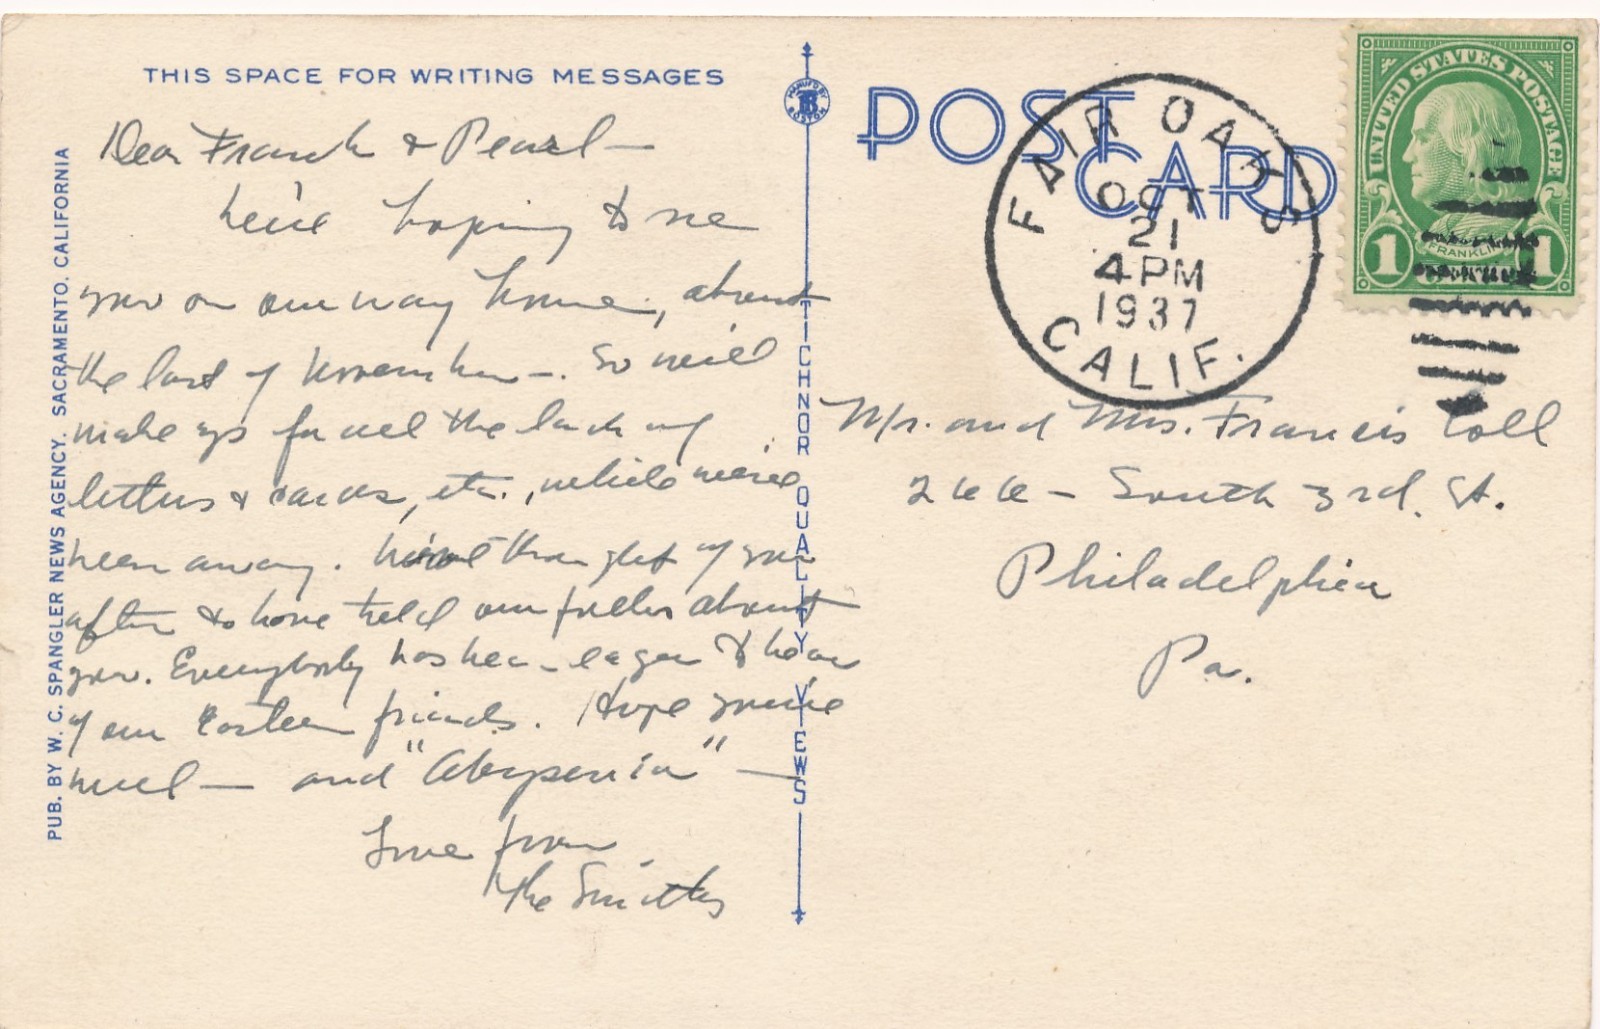 THIS SPACE FOR WRITING MESSAGES
Dear Frank & Pearl—
We're hoping to see
you on our way home, about
the last of November—. So will
make up for all the lack of
letters & cards, etc., while we've
been away. Have thought of you
often & have told our folks about
you. Everybody has been eager to hear
of our Eastern friends. Hope you're
well — and "Abyssenia" —
Love from
The Smiths
PUB. BY W. C. SPANGLER NEWS AGENCY, SACRAMENTO, CALIFORNIA
MANUF'D BY
TB
BOSTON
TICHNOR QUALITY VIEWS
POST CARD
FAIR OAKS
OCT
21
4 PM
1937
CALIF.
UNITED STATES POSTAGE
1 FRANKLIN 1
Mr. and Mrs. Francis Coll
266 — South 3rd. St.
Philadelphia
Pa.